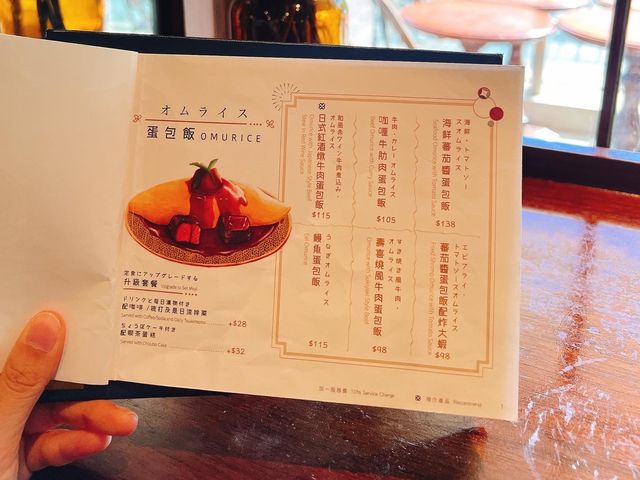 オムライス
蛋包飯 OMURICE
定食にアップグレードする
升級套餐 Upgrade to Set Meal
ドリンクと毎日漬物付き
配咖啡/梳打及是日漬排菜
Served with Coffee/Soda and Daily Tsukemono
+$28
ちょうばケーキ付き
配啜茶蛋糕
Served with Chouba Cake
+$32
海鮮・トマトソー
スオムライス
海鮮蕃茄醬蛋包飯
Seafood Omurice with Tomato Sauce
$138
牛肉・カレーオムライス
咖喱牛肋肉蛋包飯
Beef Omurice with Curry Sauce
$105
和風赤ワイン牛肉煮込み・
オムライス
日式紅酒燉牛肉蛋包飯
Omurice with Japanese Style Beef
Stew in Red Wine Sauce
$115
エビフライ・
トマトソースオムライス
蕃茄醬蛋包飯配炸大蝦
Fried Shrimp Omurice with Tomato Sauce
$98
すき焼き風牛肉・
オムライス
壽喜燒風牛肉蛋包飯
Omurice with Sukiyaki Style Beef
$98
うなぎオムライス
鰻魚蛋包飯
Eel Omurice
$115
加一服務費 10% Service Charge
推介產品 Recommend
1